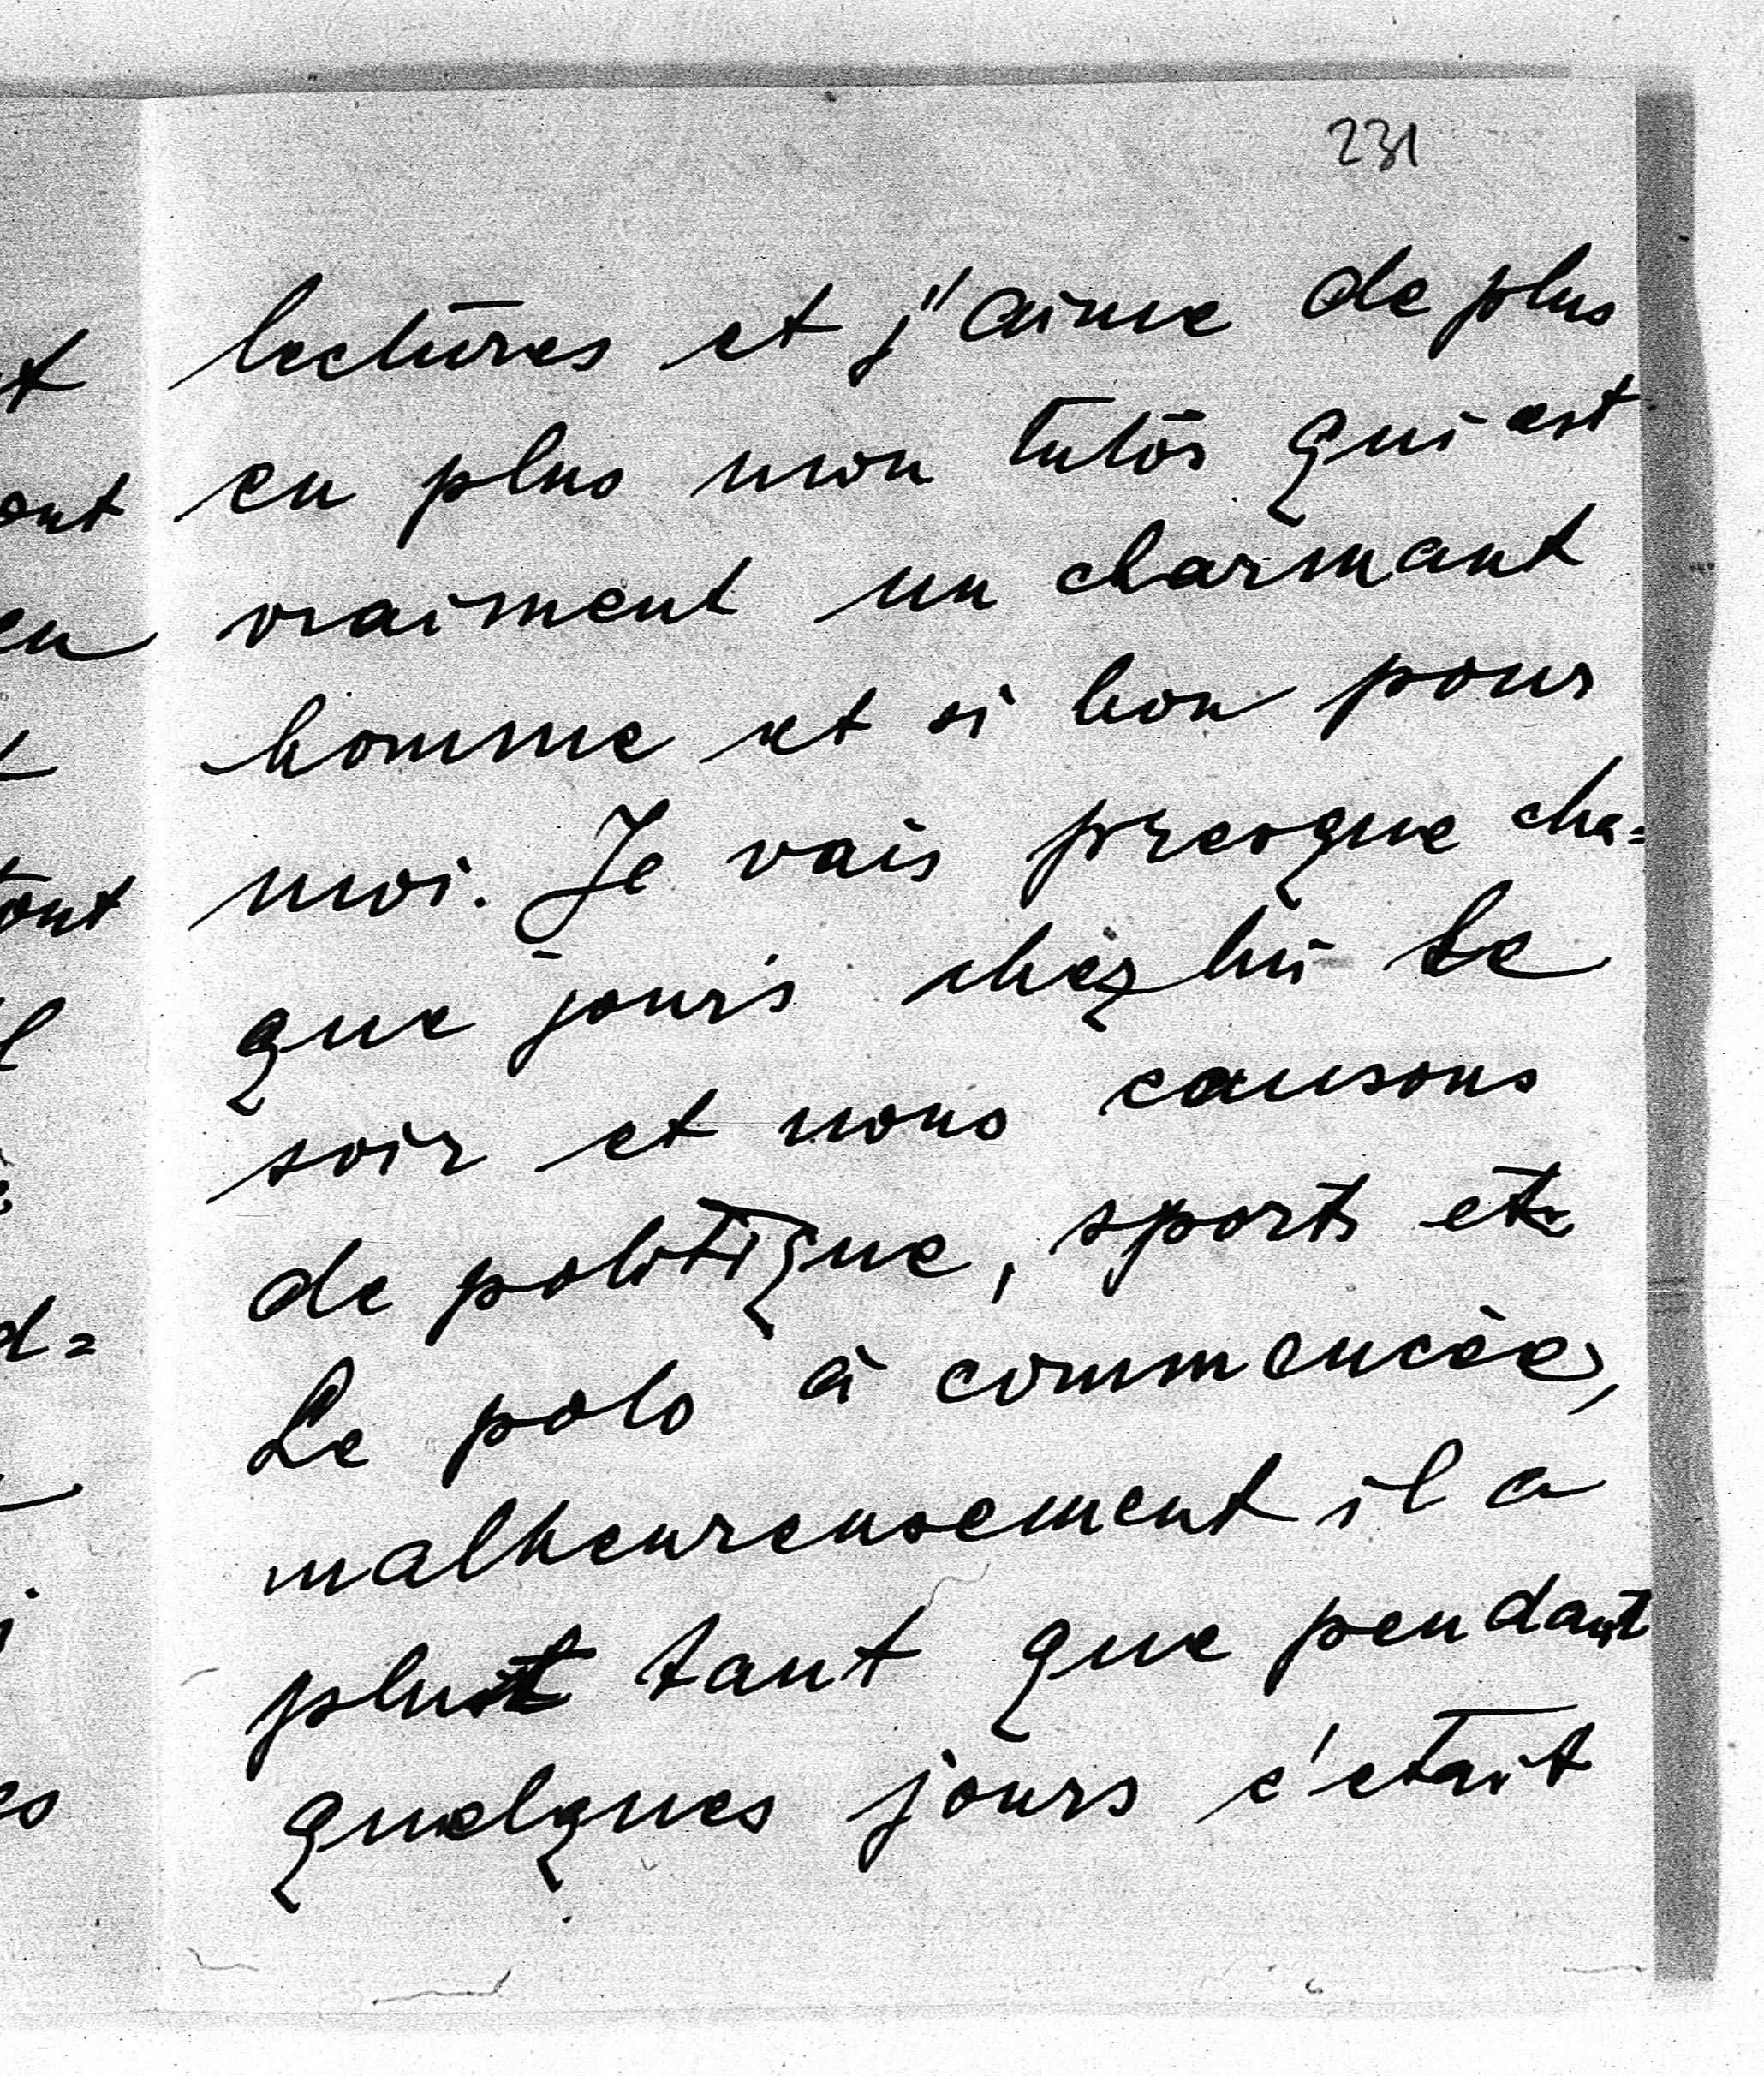 231
lectures et j'aime de plus
en plus mon tutor qui est
vraiment un charmant
homme et si bon pour
moi. Je vais presque cha=
que jours chez lui le
soir et nous causons
de politique, sports etc
Le polo à commencée,
malheureusement il a
pluit tant que pendant
quelques jours c'etait